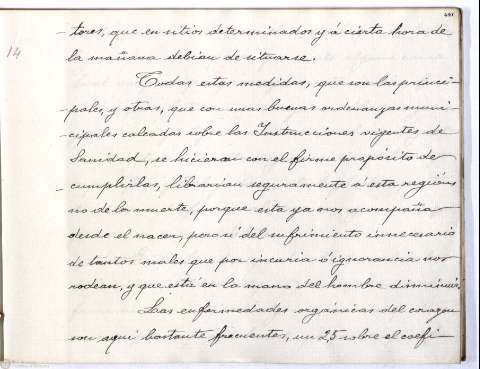 14
- tores, que en sitios determinados y á cierta hora de
la mañana debian de situarse.
Todas estas medidas, que son las princi-
- pales, y otras, que con unas buenas ordenanzas muni-
- cipales calcadas sobre las Instrucciones vigentes de
Sanidad, se hicieran con el firme propósito de
- cumplirlas, librarian seguramente á esta región
no de la muerte, porque esta ya nos acompaña
desde el nacer, pero si del sufrimiento innecesario
de tantos males que por incuria ó ignorancia nos
rodean, y que está en la mano del hombre disminuir.
Las enfermedades orgánicas del corazon
son aqui bastante frecuentes, un 2,5 sobre el coefi-